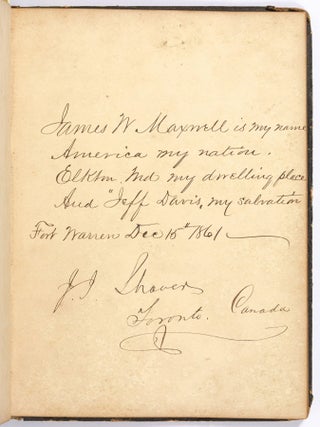 James W Maxwell is my name
America my nation.
Elkton Md my dwelling place
And "Jeff Davis, my salvation
Fort Warren Dec 15th 1861
J. J. Shaver
Toronto. Canada